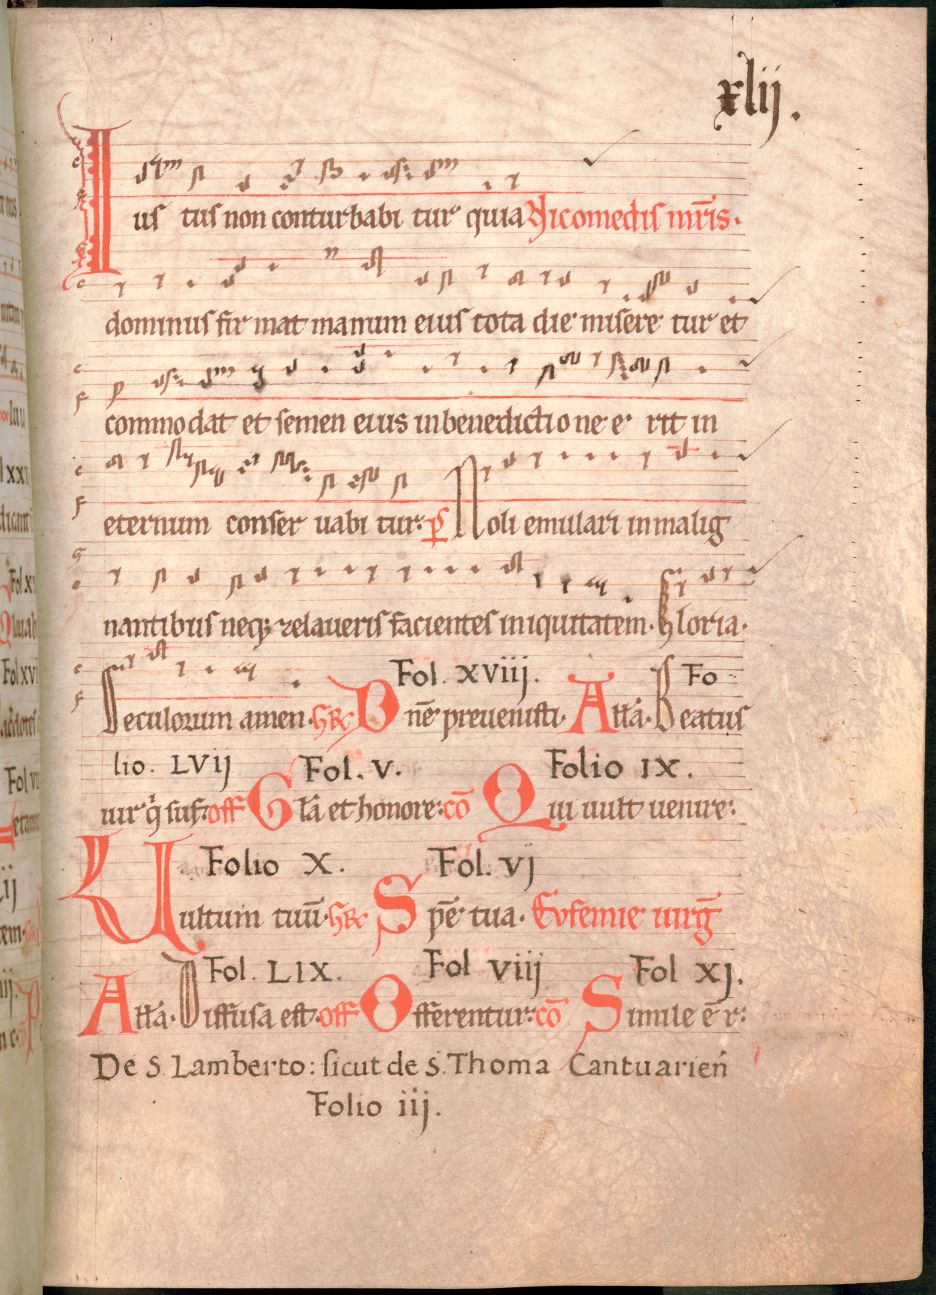 xlij.
Ius tus non conturbabi tur quia Nicomedis mr̄is.
dominus fir mat manum eius tota die misere tur et
commodat et semen eius in benedictio ne e rit in
eternum conser uabi tur. p̄s Noli emulari in malig
nantibus neq; zelaueris facientes iniquitatem. Gloria.
Fol. XVIII. Fo-
Seculorum amen. Dn̄e preuenisti. All̄a. Beatus
lio. LVIJ Fol. V. Folio IX.
uir q̇ suf. off Gl̄a et honore. cō Qui uult uenire.
Folio X. Fol. VJ
Uultum tuū. Sp̄e tua. Eufemie uirḡ
Fol. LIX. Fol VIIJ Fol XJ.
All̄a. Diffusa est. off Offerentur. cō Simile ē r.
De S. Lamberto: sicut de S. Thoma Cantuarien̄
Folio iij.